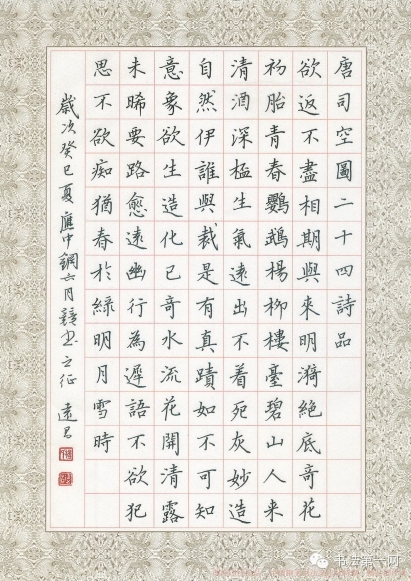 唐司空圖二十四詩品
欲返不盡相期與來明漪絕底奇花
初胎青春鸚鵡楊柳樓臺碧山人來
清酒深桮生氣遠出不着死灰妙造
自然伊誰與裁是有真蹟如不可知
意象欲生造化已奇水流花開清露
未晞要路愈遠幽行為遲語不欲犯
思不欲痴猶春於綠明月雪時
歲次癸巳夏應中鋼六月競書之征 遠君
书法第一网